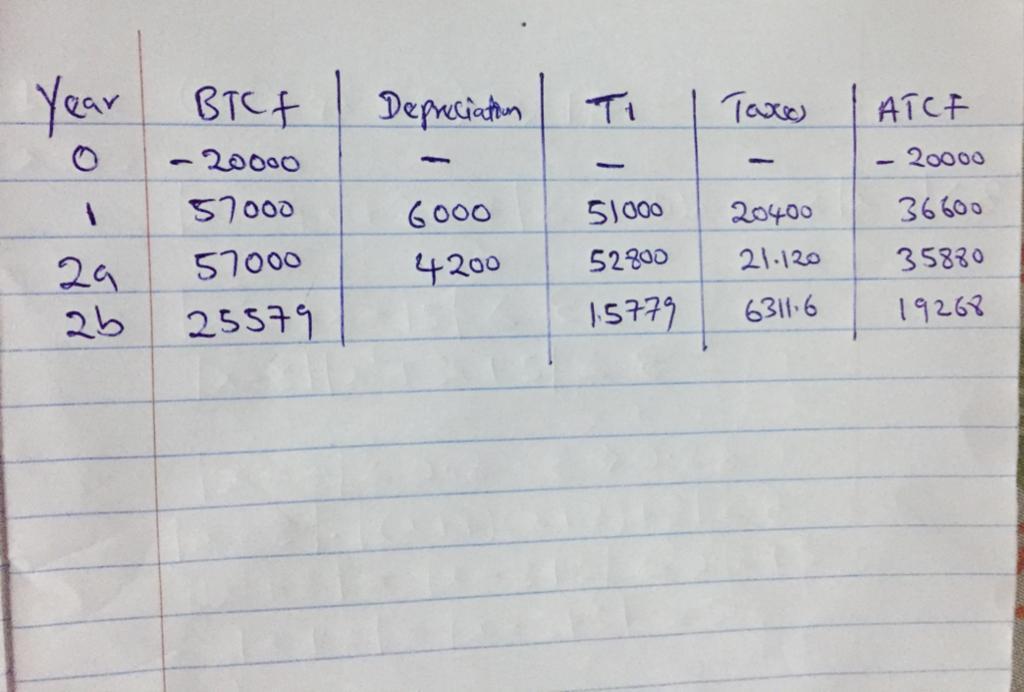 Year BTCF Depreciation TI Taxes ATCF
0 -20000 - - - -20000
1 57000 6000 51000 20400 36600
2a 57000 4200 52800 21.120 35880
2b 25579 1.5779 6311.6 19268